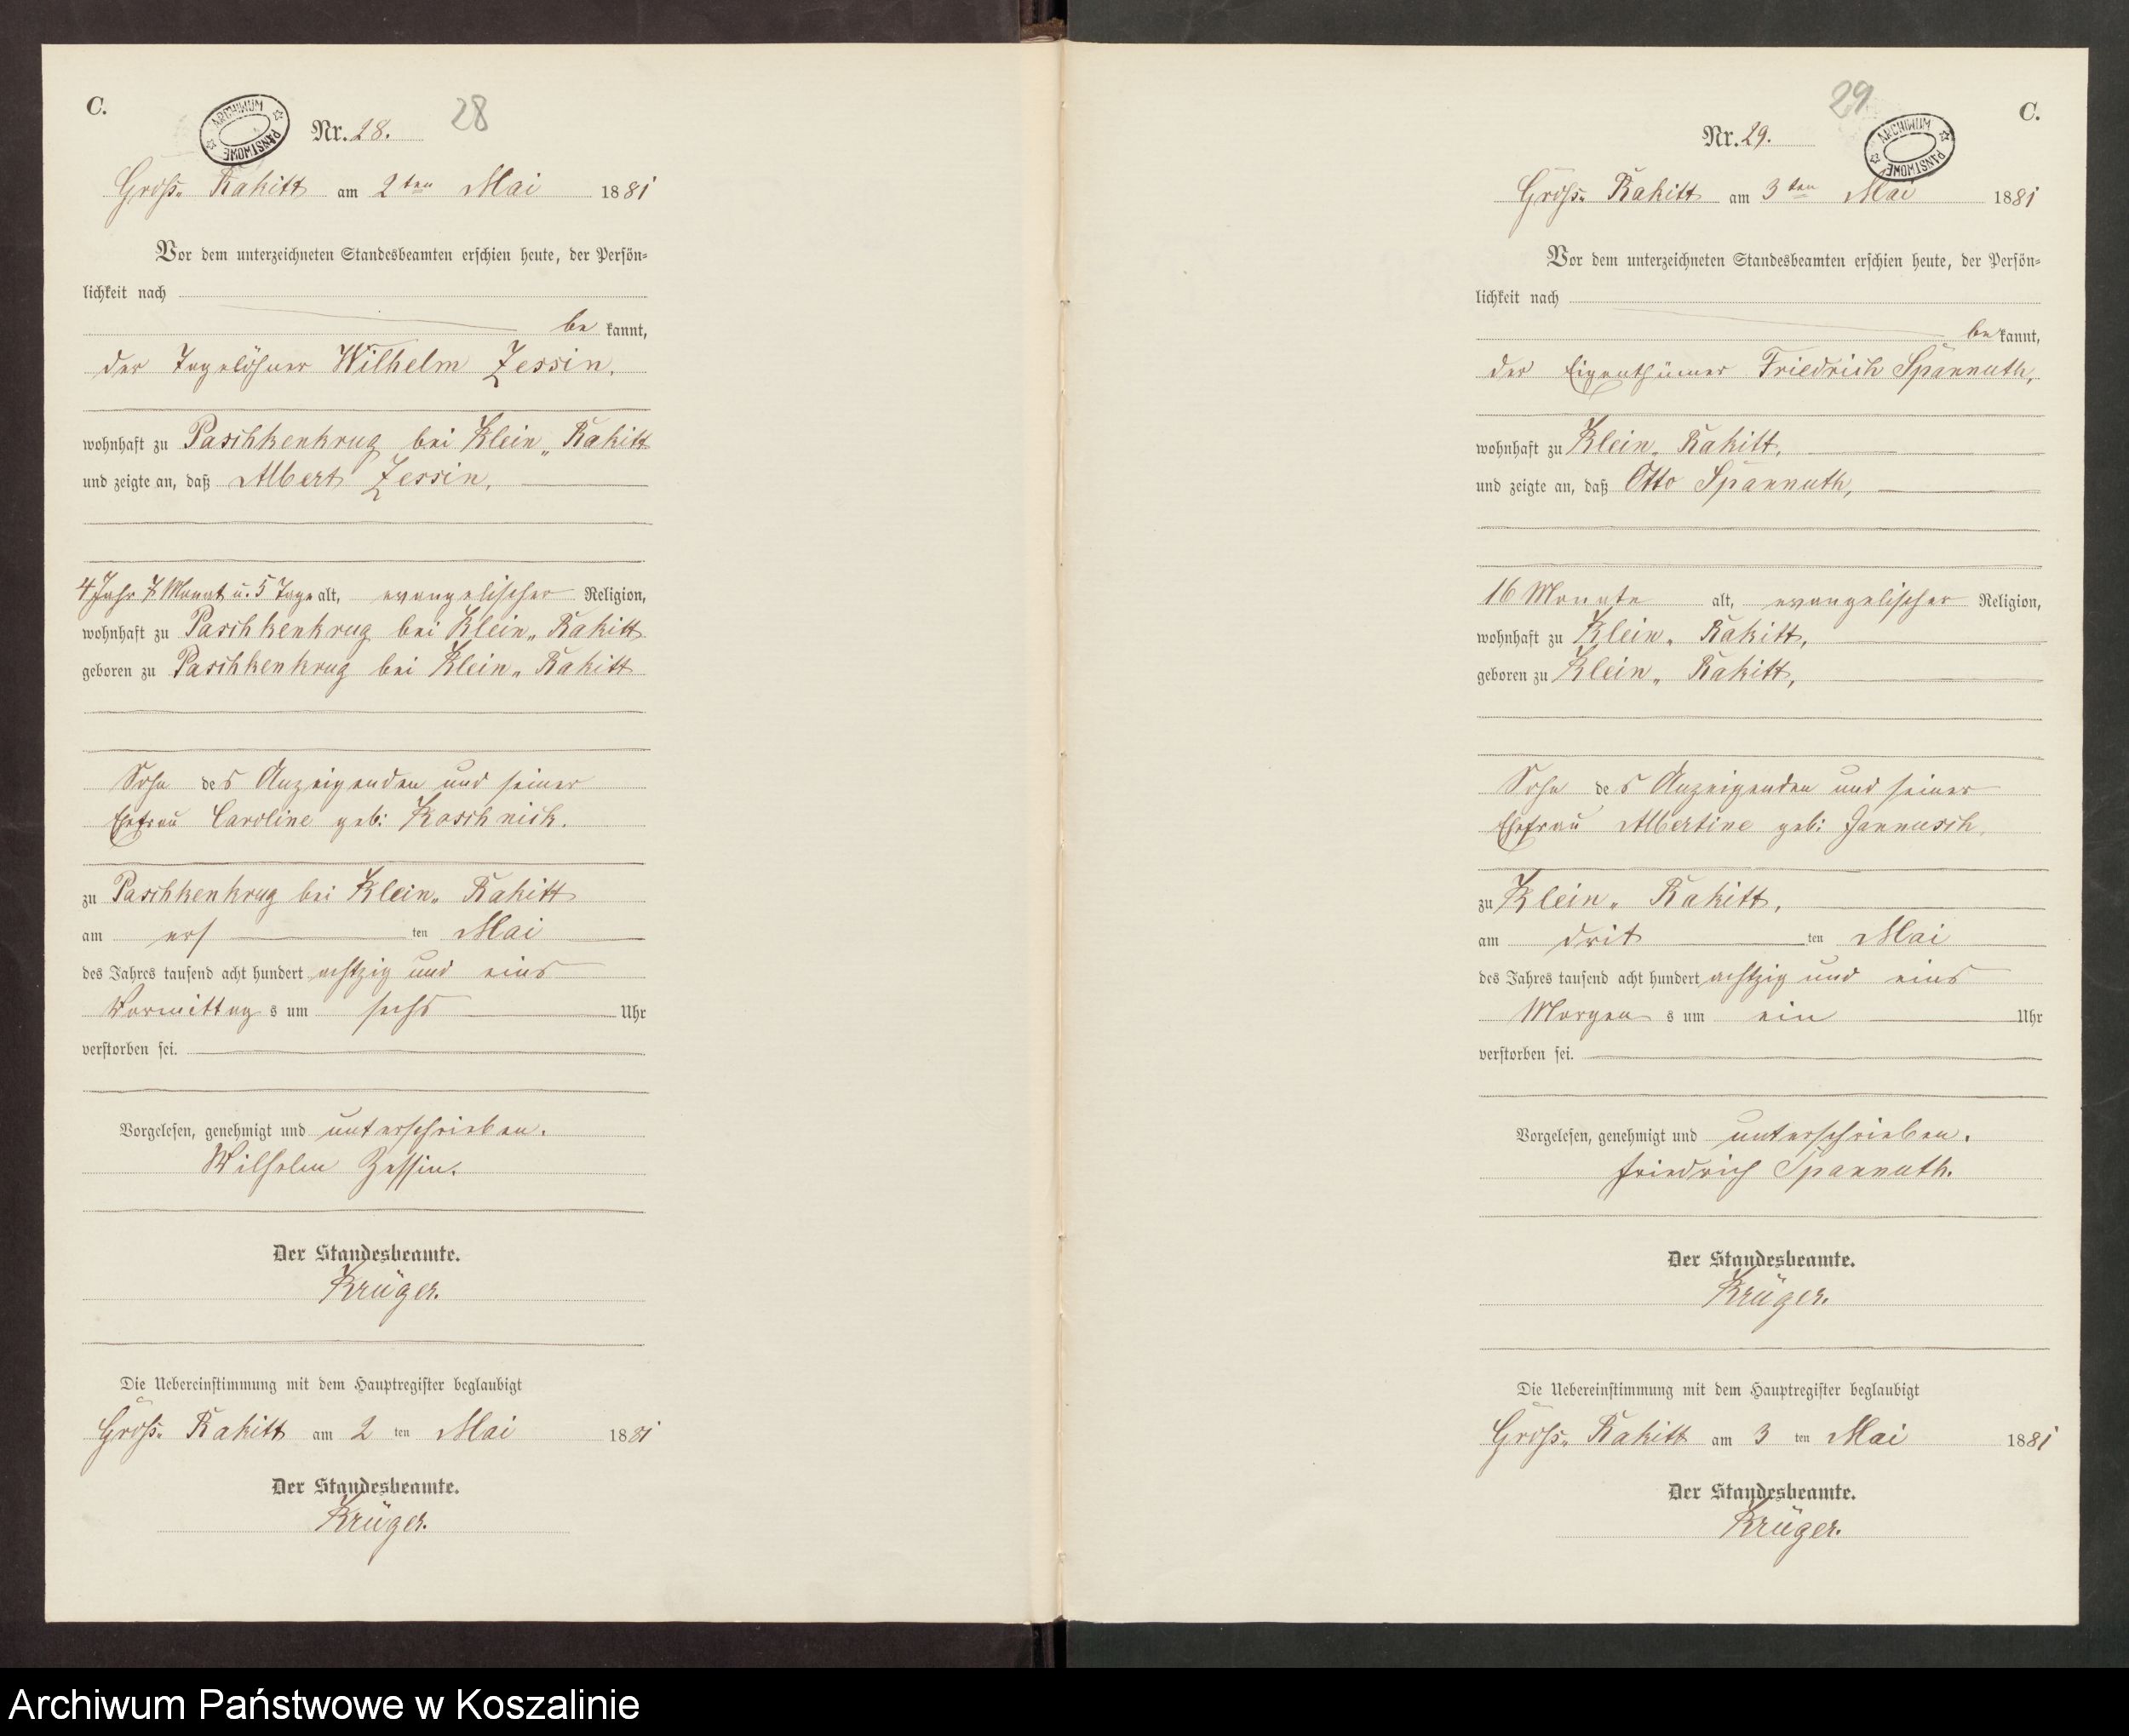 C.
ARCHIWUM PAŃSTWOWE
Nr. 28.
28
Groß- Rakitt am 2ten Mai 1881
Vor dem unterzeichneten Standesbeamten erschien heute, der Persön-
lichkeit nach
be kannt,
der Tagelöhner Wilhelm Zessin,
wohnhaft zu Paschkenkrug bei Klein- Rakitt
und zeigte an, daß Albert Zessin,
4 Jahr 7 Monat u. 5 Tage alt, evangelischer Religion,
wohnhaft zu Paschkenkrug bei Klein- Rakitt
geboren zu Paschkenkrug bei Klein- Rakitt
Sohn des Anzeigenden und seiner
Ehefrau Caroline geb: Koschnick.
zu Paschkenkrug bei Klein- Rakitt
am ers ten Mai
des Jahres tausend acht hundert achtzig und eins
Vormittag s um sechs Uhr
verstorben sei.
Vorgelesen, genehmigt und unterschrieben.
Wilhelm Zessin.
Der Standesbeamte.
Krüger.
Die Uebereinstimmung mit dem Hauptregister beglaubigt
Groß- Rakitt am 2 ten Mai 1881
Der Standesbeamte.
Krüger.
29
C.
Nr. 29.
ARCHIWUM PAŃSTWOWE
Groß- Rakitt am 3ten Mai 1881
Vor dem unterzeichneten Standesbeamten erschien heute, der Persön-
lichkeit nach
be kannt,
der Eigenthümer Friedrich Spannuth,
wohnhaft zu Klein- Rakitt,
und zeigte an, daß Otto Spannuth,
16 Monate alt, evangelischer Religion,
wohnhaft zu Klein- Rakitt,
geboren zu Klein- Rakitt,
Sohn des Anzeigenden und seiner
Ehefrau Albertine geb: Jannusch.
zu Klein- Rakitt,
am drit ten Mai
des Jahres tausend acht hundert achtzig und eins
Morgen s um ein Uhr
verstorben sei.
Vorgelesen, genehmigt und unterschrieben.
Friedrich Spannuth.
Der Standesbeamte.
Krüger.
Die Uebereinstimmung mit dem Hauptregister beglaubigt
Groß- Rakitt am 3 ten Mai 1881
Der Standesbeamte.
Krüger.
Archiwum Państwowe w Koszalinie